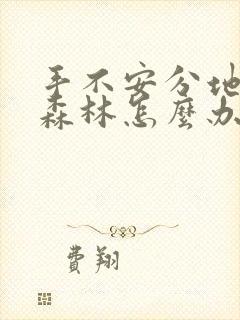 手不安分地
森林怎麼办
費翔